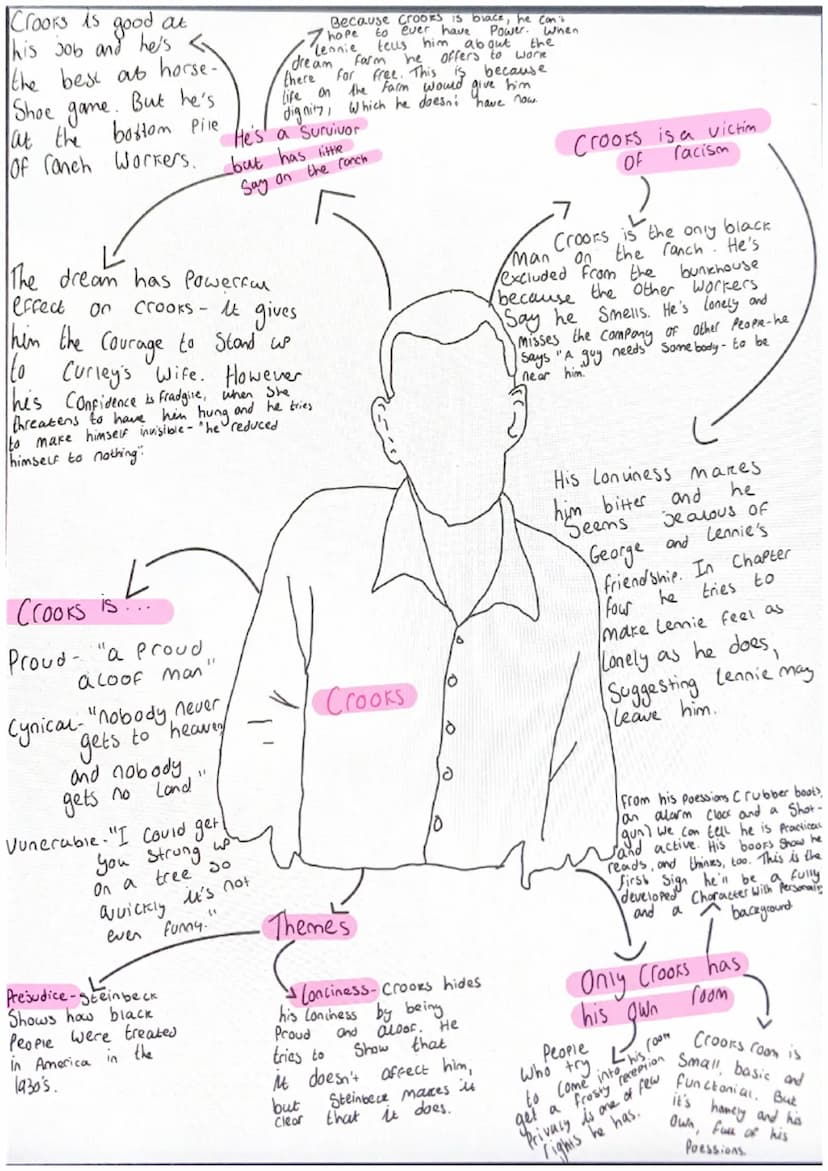 Crooks is good at
his job and he's
the best at horse-
shoe game. But he's
at the bottom pile
of ranch workers.
Because Crooks is black, he can't
hope to ever have power. When
Lennie tells him about the
dream farm he offers to work
there for free. This is because
life on the farm would give him
dignity, which he doesn't have now.
He's a survivor
but has little
say on the ranch
Crooks is a victim
of racism
Crooks is the only black
man on the ranch. He's
excluded from the bunkhouse
because the other workers
say he smells. He's lonely and
misses the company of other people-he
says "A guy needs somebody- to be
near him."
The dream has powerful
effect on Crooks- it gives
him the courage to stand up
to Curley's wife. However
his confidence is fradgile, when she
threatens to have him hung and he tries
to make himself invisible- "he reduced
himself to nothing".
His lonliness makes
him bitter and he
seems jealous of
George and Lennie's
friendship. In Chapter
four he tries to
make Lennie feel as
lonely as he does,
suggesting Lennie may
leave him.
Crooks is...
Proud- "a proud
aloof man"
Cynical- "nobody never
gets to heaven
and nobody
gets no land"
Vunerable- "I could get
you strung up
on a tree so
quickly it's not
even funny."
Crooks
From his poessions (rubber boots,
an alarm clock and a shot-
gun) we can tell he is practical
and active. His books show he
reads, and thinks, too. This is the
first sign he'll be a fully
developed character with personality
and a background
Themes
Prejudice- Steinbeck
shows how black
people were treated
in America in the
1930's.
Lonliness- Crooks hides
his lonliness by being
proud and aloof. He
tries to show that
it doesn't affect him,
but Steinbeck makes it
clear that it does.
Only Crooks has
his own room
People
who try
to come into his room
get a frosty reception
Privacy is one of few
rights he has.
Crooks room is
small, basic and
functonial. But
it's homely and his
own, full of his
poessions.